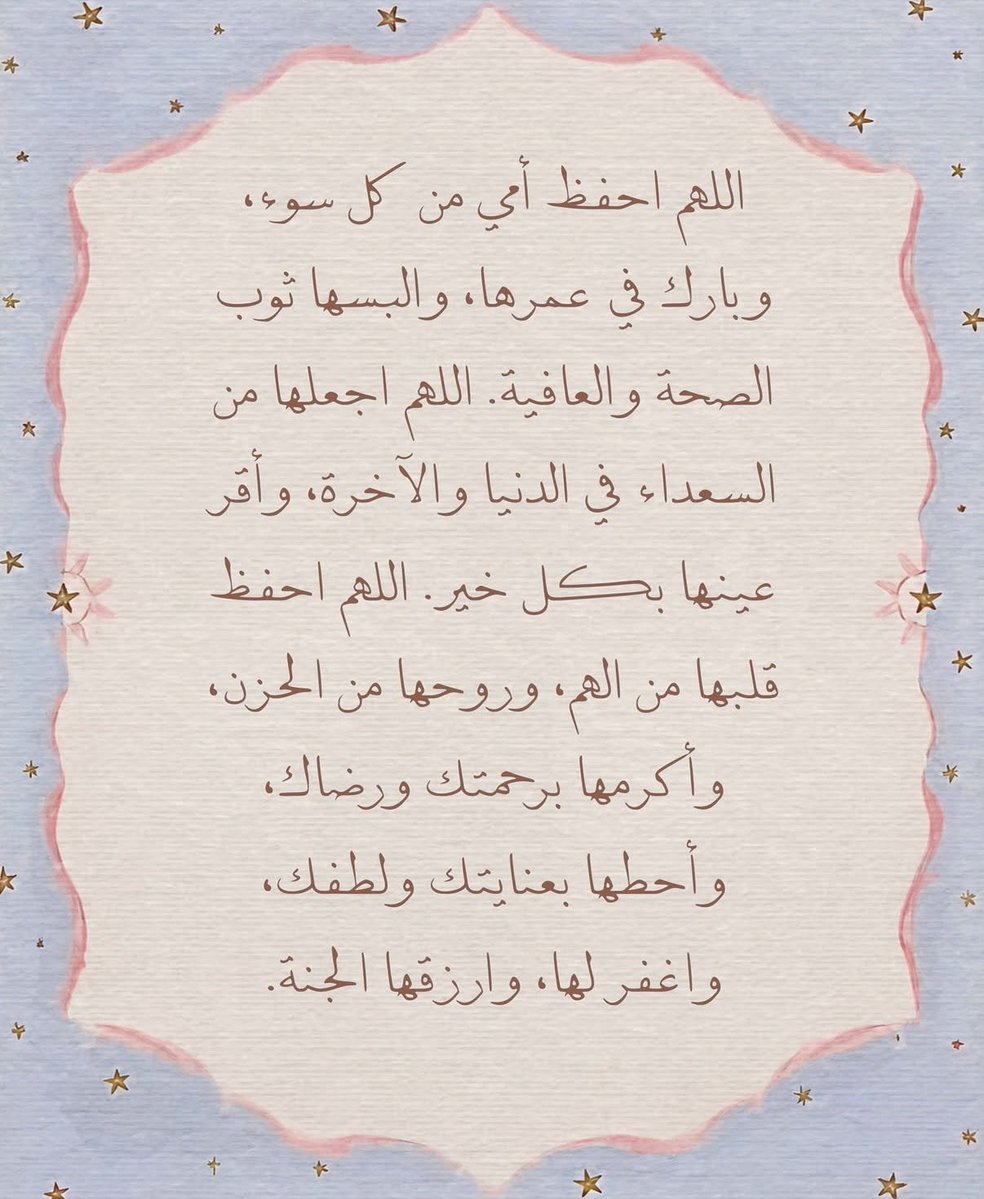 اللهم احفظ أمي من كل سوء،
وبارك في عمرها، والبسها ثوب
الصحة والعافية. اللهم اجعلها من
السعداء في الدنيا والآخرة، وأقر
عينها بكل خير. اللهم احفظ
قلبها من الهم، وروحها من الحزن،
وأكرمها برحمتك ورضاك،
وأحطها بعنايتك ولطفك،
واغفر لها، وارزقها الجنة.